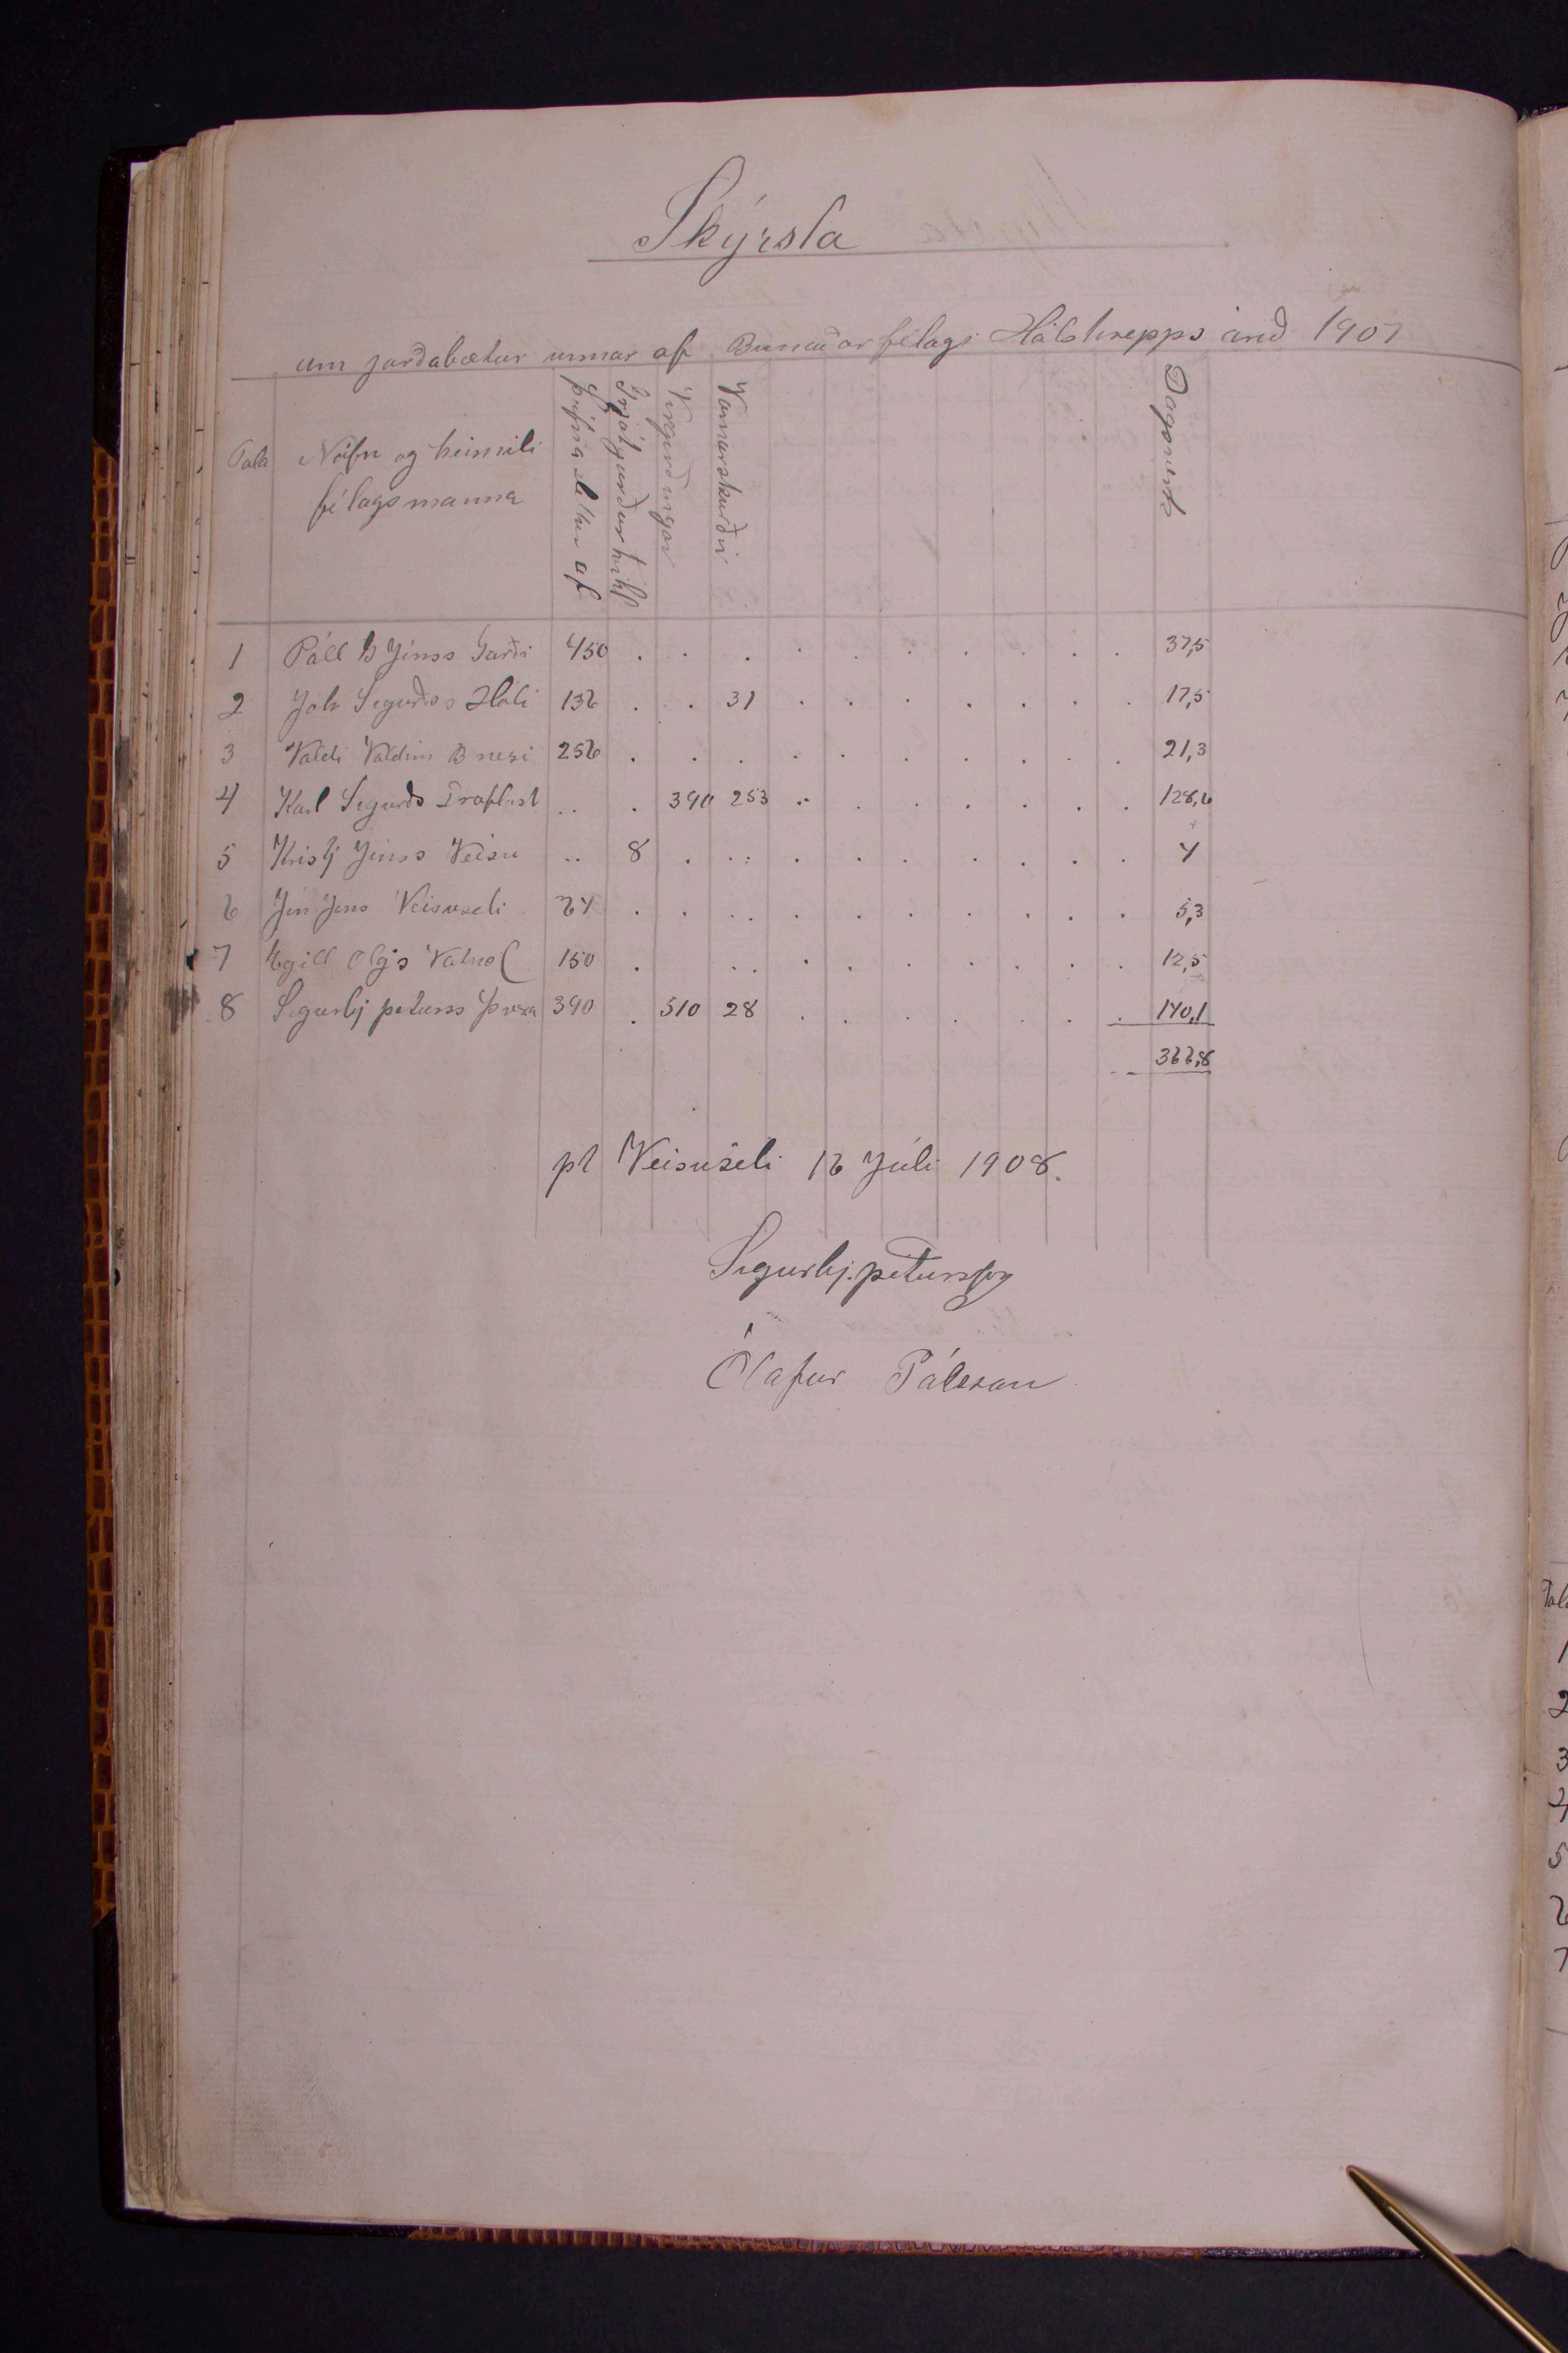 Skýrsla
um jarðabætur unnar af Bunaðarfélagi Hálshrepps árið 1907
Tala Nöfn og heimili félagsmanna Þúfna sléttur af Grjótgarður tvíhl Vírgirðingar Varnarskurðir Dagsverk
1 Páll G Jónss Garði 450 . . . . . . . . . . 37,5
2 Joh Sigurðss Hóli 136 . . 31 . . . . . . . 17,5
3 Valdi Valdim B nesi 256 . . . . . . . . . . 21,3
4 Karl Sigurðs Draflast .. . 390 253 . . . . . . . 128,6
5 Kristj Jónss Veisu .. 8 . .. . . . . . . . 4
6 Jón Jóns Veisuseli 64 . . .. . . . . . . . 5,3
7 Egill Olgs Vatnsl 150 . .. . . . . . . . 12,5
8 Sigurbj péturss Þverá 390 . 510 28 . . . . . . . 140,1
366,8
pt Veisuseli 16 Júli 1908.
Sigurbj. péturssog
Ólafur Pálsson
Tala
1
2
3
4
5
6
7